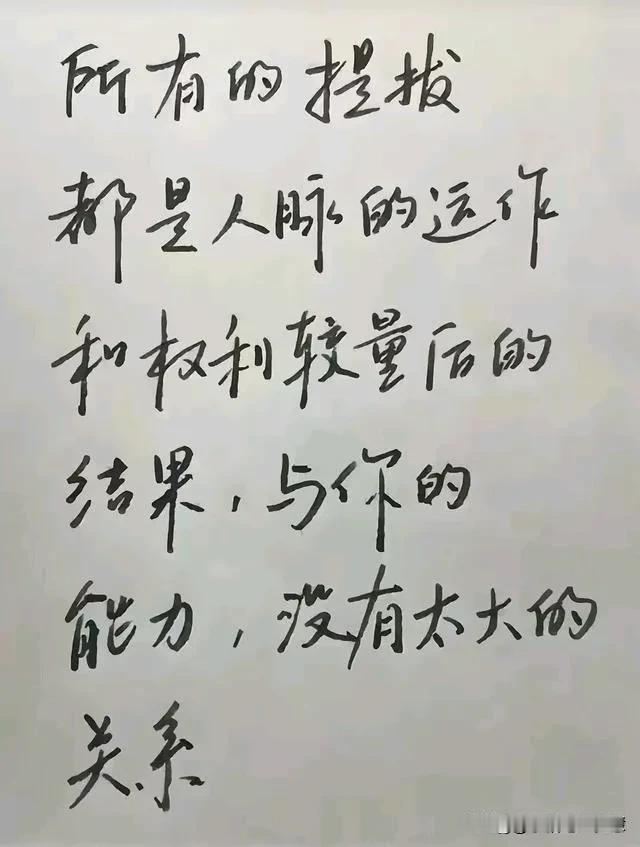 所有的提拔
都是人脉的运作
和权利较量后的
结果，与你的
能力，没有太大的
关系